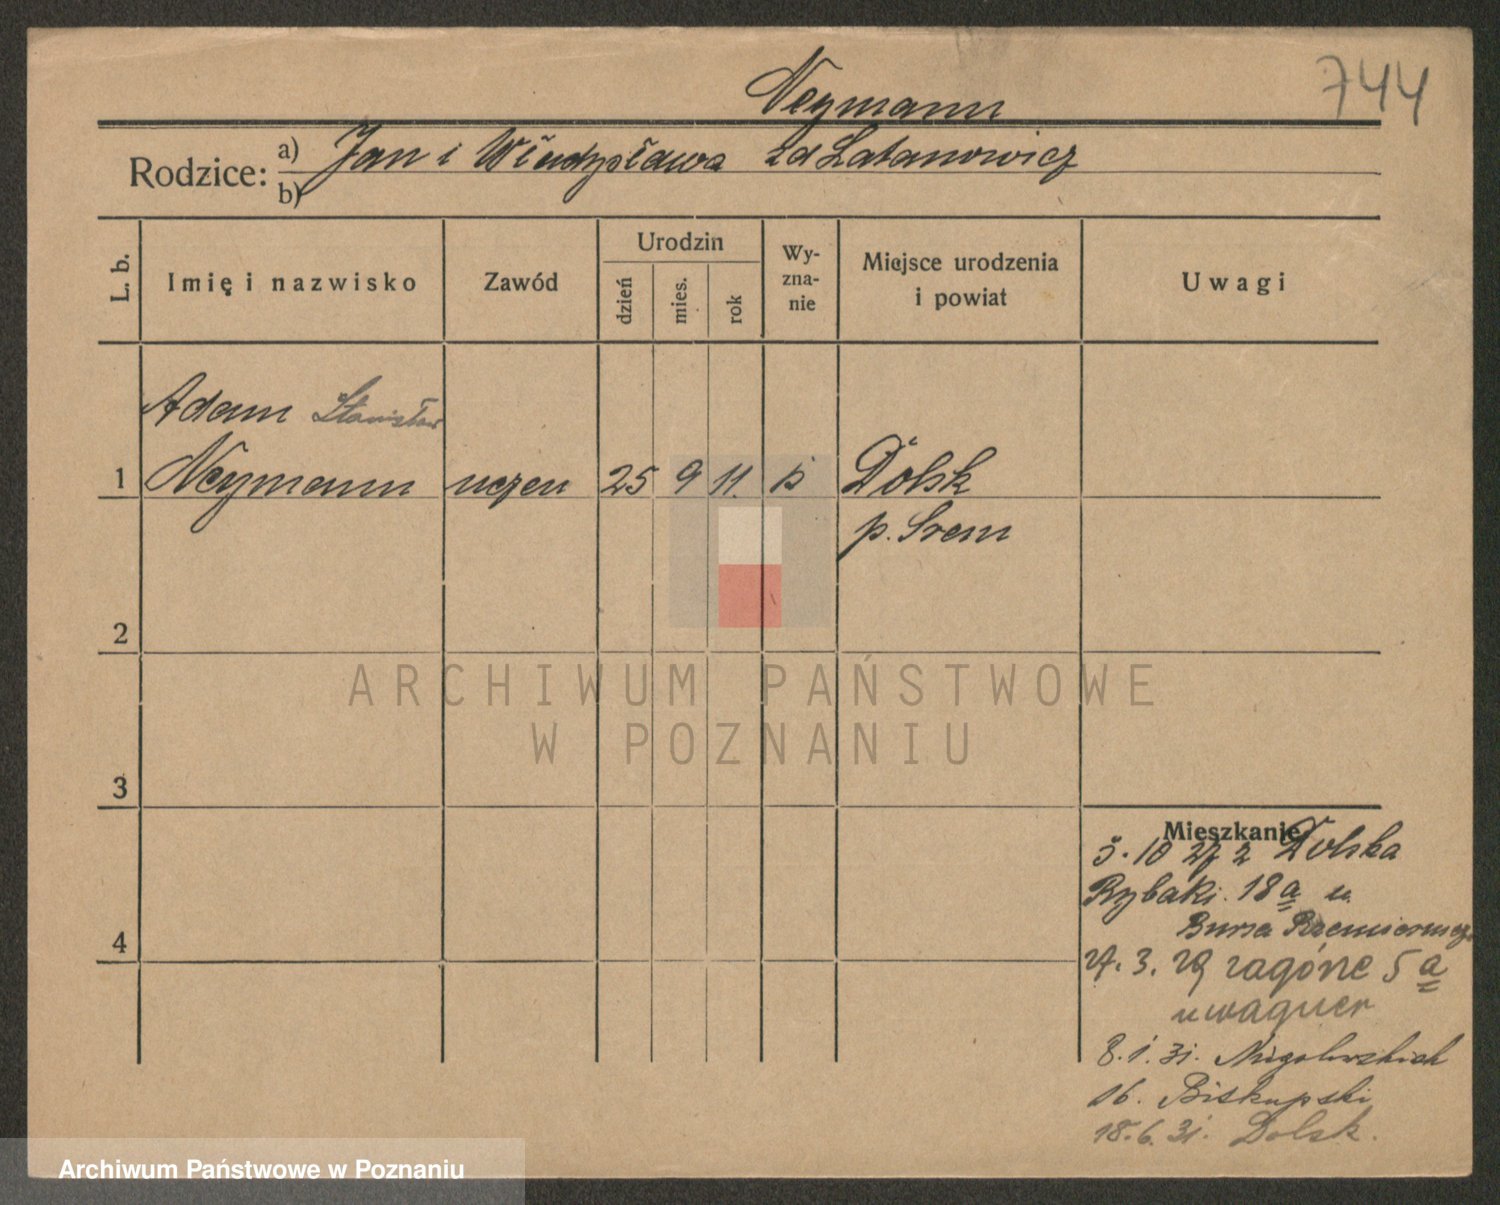 744
Neymann
Rodzice: a) Jan i Władysława zd Łatanowicz
b)
L. b. Imię i nazwisko Zawód Urodzin dzień mies. rok Wy-zna-nie Miejsce urodzenia i powiat Uwagi
Adam Stanisław
1 Neymann uczen 25 9 11. Dolsk
p. Srem
2
ARCHIWUM PAŃSTWOWE
W POZNANIU
3
Mieszkanie
5. 10 27 z Dolska
Rybaki. 18a u.
Bursa
27. 3. 29 zagórze 5a
u wagner
8. 1. 31. Niegolewskich
16. Biskupski
4
18. 6. 31. Dolsk.
Archiwum Państwowe w Poznaniu